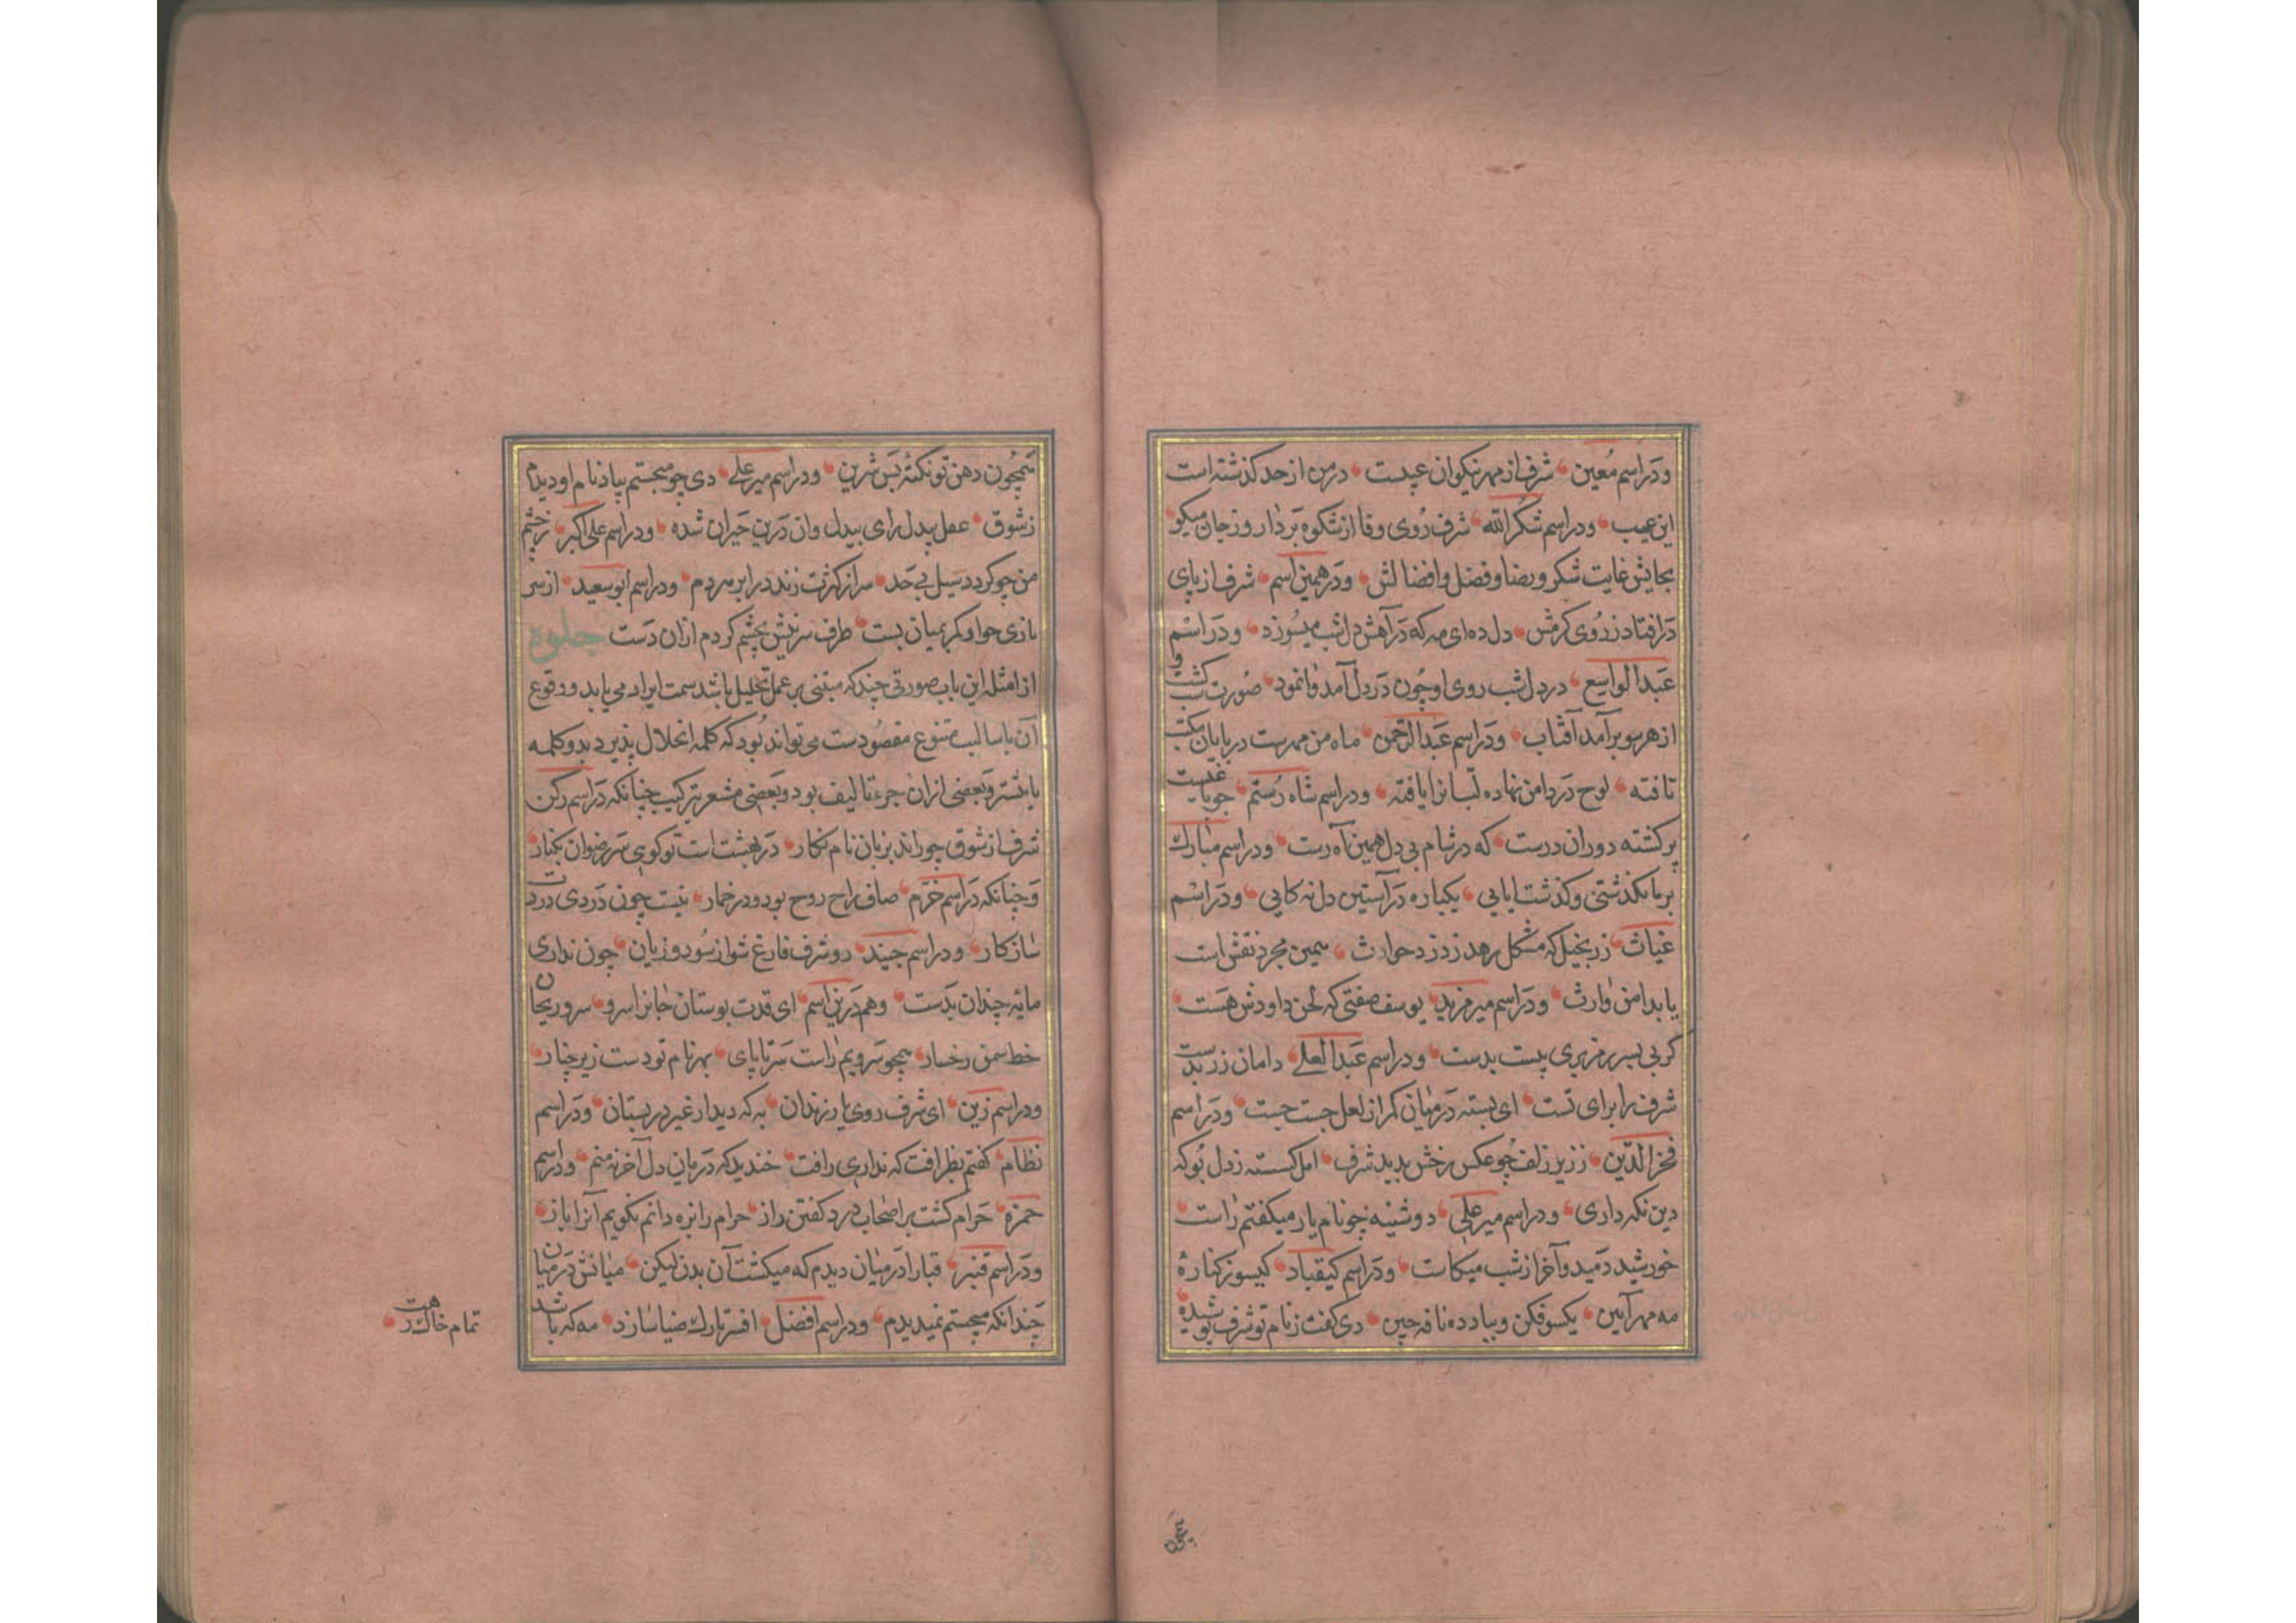 ودر اسم معین شرف از مهر نیکوان عیبست در من از حد گذشته است
این عیب ودر اسم شکر الله شرف روی وفا از شکوه بردار و ز جان میگو
بجانش غایت شکر و رضا و فضل و افضالش ودر همین اسم شرف از پای
در افتاد ز روی کرمش دل ده ای مه که در آهش دل شب میسوزد ودر اسم
عبد الواسع در دل شب روی او چون در دل آمد وا نمود صورت
از هر سو بر آمد آفتاب ودر اسم عبد الرحمن ماه من مهرست در پایان
تافته لوح در دامن نهاده لب انرا یافته ودر اسم شاه رستم
برگشته دوران درست که در شام بی دل همین آه رست ودر اسم مبارک
بر ما بگذشتی و گذشت ایابی یکباره در آستین دل نه کابی ودر اسم
غیاث زر بخیل که مشکل رهد ز دزد حوادث همین مجرد نقش است
یا بدامن وارث ودر اسم میر مزید یوسف صفتی که لحن داودش هست
گر بی بسر پری پست بدست ودر اسم عبد العلی دامان زر بدست
شرف را برای تست ای بسته در میان کمر از لعل چست چست ودر اسم
فخر الدین ز زیر زلف چو عکس رخش بدید شرف امل گسسته ز دل بو که
دین نگه داری ودر اسم میر علی دوشینه چو نام یار میگفتم راست
خورشید دمید و آخر از شب میکاست ودر اسم کیقباد گیسو ز کناره
مه مهر آیین یکسو فکن و بباد ده نافه چین دی گفت ز نام تو شرف پوشیده
همچون دهن تو نکته بس شرین ودر اسم میر علی دی چو میجستم بیاد نام او دیدم
ز شوق عقل بیدل رای بیدل وان درین حیران شده ودر اسم علی اکبر ز چشم
من چو گردد سیل بی حد سر از کثرت زند در ابر مردم ودر اسم ابو سعید از سر
بازی چو او کمر بمیان بست طرف سر زلفش بچشم کردم ازان دست جلوه
از امثله این باب صورتی چند که مبتنی بر عمل تحلیل باشد سمت ایراد می یابد و وقوع
آن باسالیب متنوع مقصودست می تواند بود که کلمه انحلال پذیرد بدو کلمه
یا بیشتر و بعضی ازان جزء تالیف بود و بعضی مشعر بترکیب چنانکه در اسم رکن
شرف از شوق چو راند بزبان نام نگار در بهشت است تو گویی سر رضوان بکنار
و چنانکه در اسم خرم صاف راح روح بود ودر خمار نیست چون دردی درت
ساز کار ودر اسم جنید دو شرف فارغ شو از سود و زیان چون نداری
مایه چندان بدست و هم درین اسم ای قدت بوستان جانرا سرو سرو ریحان
خط سمن رخسار همچو سرویم راست سر تا پای بهر نام تو دست زیر چنار
ودر اسم زین ای شرف روی یار زندان به که دیدار غیر در بستان ودر اسم
نظام گفتم بظرافت که نداری رافت خندید که درمان دل آخر نه منم ودر اسم
حمزه حرام گشت بر اصحاب درد گفتن راز حرام را نزه دانم نگویم آنرا باز
ودر اسم قنبر قبا را در میان دیدم که میگشت آن بدن لیکن میانش در میان
چندانکه میجستم نمیدیدم ودر اسم افضل افسر تارک ضیا سازد مه که باشد
تمام خاک رهت